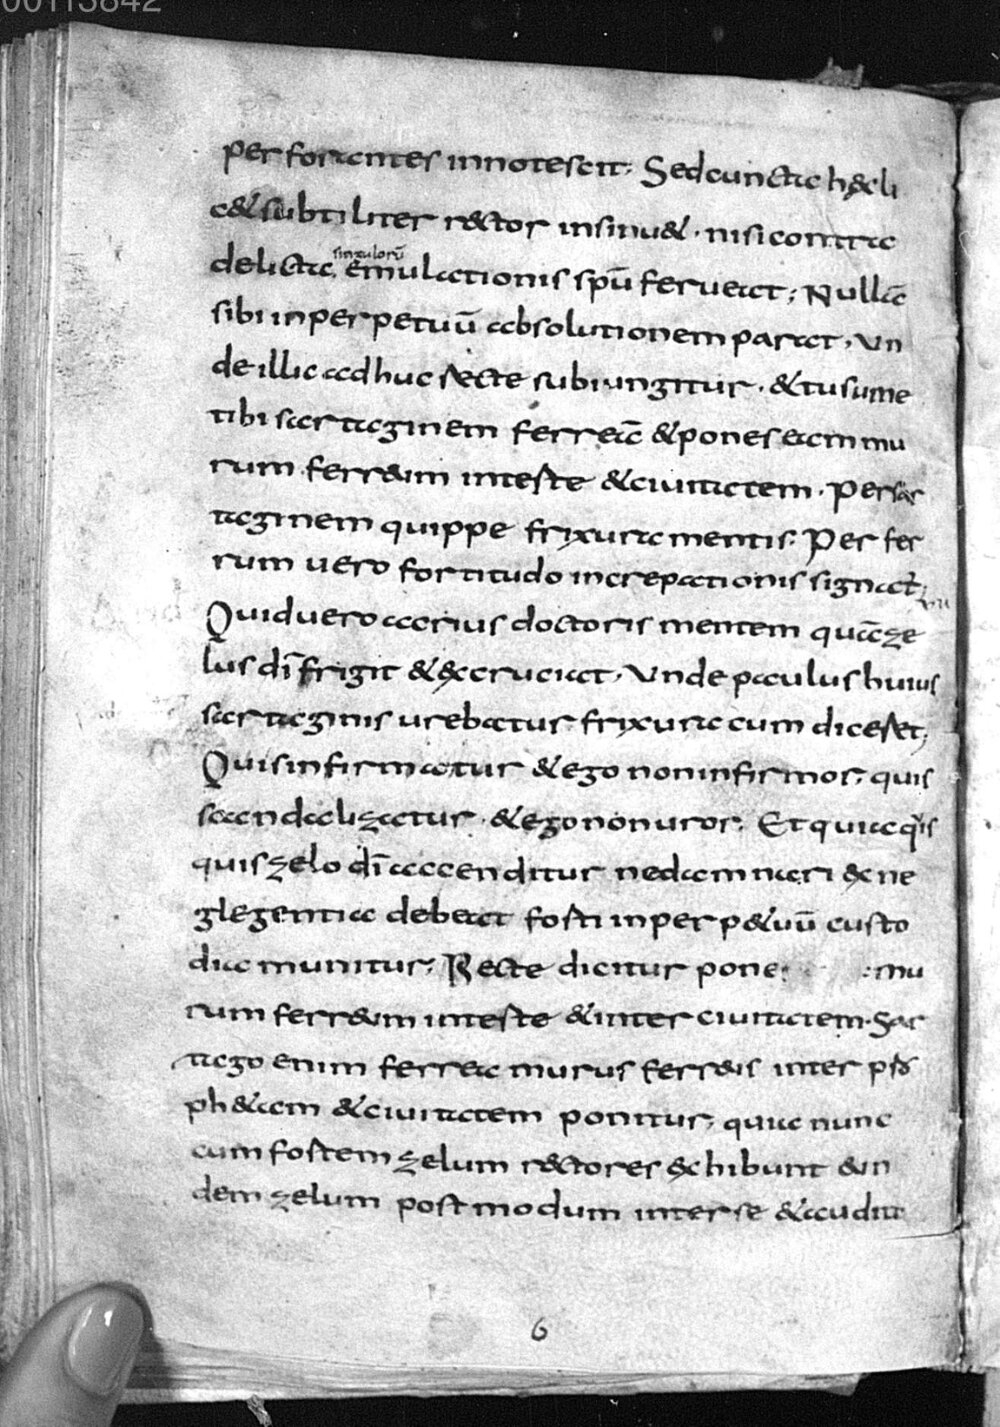 00113842
per fortantes innotescit; Sed cuncta hęc li
c& subtiliter rector insinu&. nisi contra
delicta, emulationis spū ferueat; Nullā
singulorū
sibi in perpetuū absolutionem parat. Un
de illic adhuc recte subiungitur. & tu sume
tibi sartaginem ferreā & pones eam mu
rum ferreum inter te & ciuitatem. Per sar
taginem quippe frixura mentis. Per fer
rum uero fortitudo increpationis signat̄;
Quid uero acrius doctoris mentem quā ze
lus dī frigit & excruciat. Unde paulus huius
sartaginis urebatur frixura cum diceret;
Quis infirmatur & ego non infirmor; quis
scandalizatur. & ego non uror. Et quia q̓s
quis zelo dī accenditur ne damnari ex ne
glegentia debeat forti in perp&uū custo
dia munitur; Recte dicitur pone mu
rum ferreum inter te & inter ciuitatem. Sar
tago enim ferrea murus ferreus inter
ph&am & ciuitatem ponitur, quia nunc
cum fortem zelum rectores exhibunt eun
dem zelum postmodum inter se & audito
6